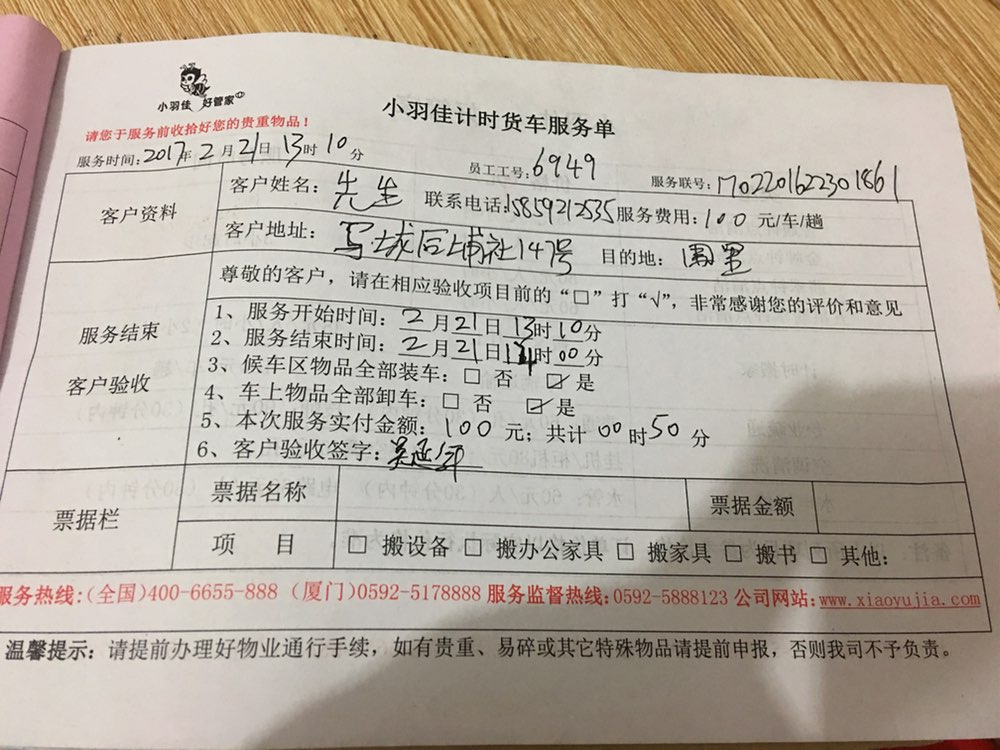 小羽佳 好管家
小羽佳计时货车服务单
请您于服务前收拾好您的贵重物品！
服务时间：2017年2月21日13时10分 员工工号：6949 服务联号：1702201622301861
客户资料
客户姓名：先生 联系电话：15859212535 服务费用：100元/车/趟
客户地址：后埔社147号 目的地：围里
服务结束
客户验收
尊敬的客户，请在相应验收项目前的“□”打“√”，非常感谢您的评价和意见
1、服务开始时间：2月21日13时10分
2、服务结束时间：2月21日14时00分
3、候车区物品全部装车：□ 否 ☑ 是
4、车上物品全部卸车：□ 否 ☑ 是
5、本次服务实付金额：100元；共计00时50分
6、客户验收签字：吴延年
票据栏
票据名称 票据金额
项 目 □ 搬设备 □ 搬办公家具 □ 搬家具 □ 搬书 □ 其他：
服务热线：(全国)400-6655-888 (厦门)0592-5178888 服务监督热线：0592-5888123 公司网站：www.xiaoyujia.com
温馨提示：请提前办理好物业通行手续，如有贵重、易碎或其它特殊物品请提前申报，否则我司不予负责。